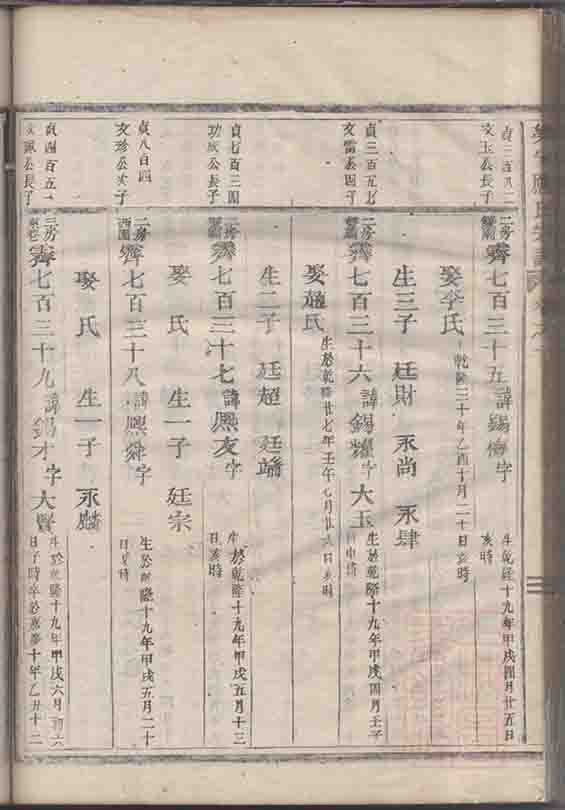 貞三百五八二
文玉公長子
二房
霽七百三十五諱錫 字
生乾隆十九年甲戌四月廿五日
亥時
娶李氏
乾隆二十年乙酉十月二十日亥時
生三子 廷財 永尚 永肆
貞三百五七
文雷公四子
二房
霽七百三十六諱錫耀字大玉
生於乾隆十九年甲戌四月壬子
申時
娶趙氏
生於乾隆廿七年壬午七月廿六日亥時
生二子 廷超 廷端
貞七百三四
功成公長子
二房
霽七百三十七諱熙友字
生於乾隆十九年甲戌五月十三
日亥時
娶 氏 生一子 廷宗
貞八百四
文珍公次子
二房
西園
霽七百三十八諱熙舜字
生於乾隆十九年甲戌五月二十
日 時
娶 氏 生一子 永麟
貞四百五
公長子
三房
霽七百三十九諱錫才字大賢
生於乾隆十九年甲戌六月初六
日子時卒於嘉慶十年乙丑十二